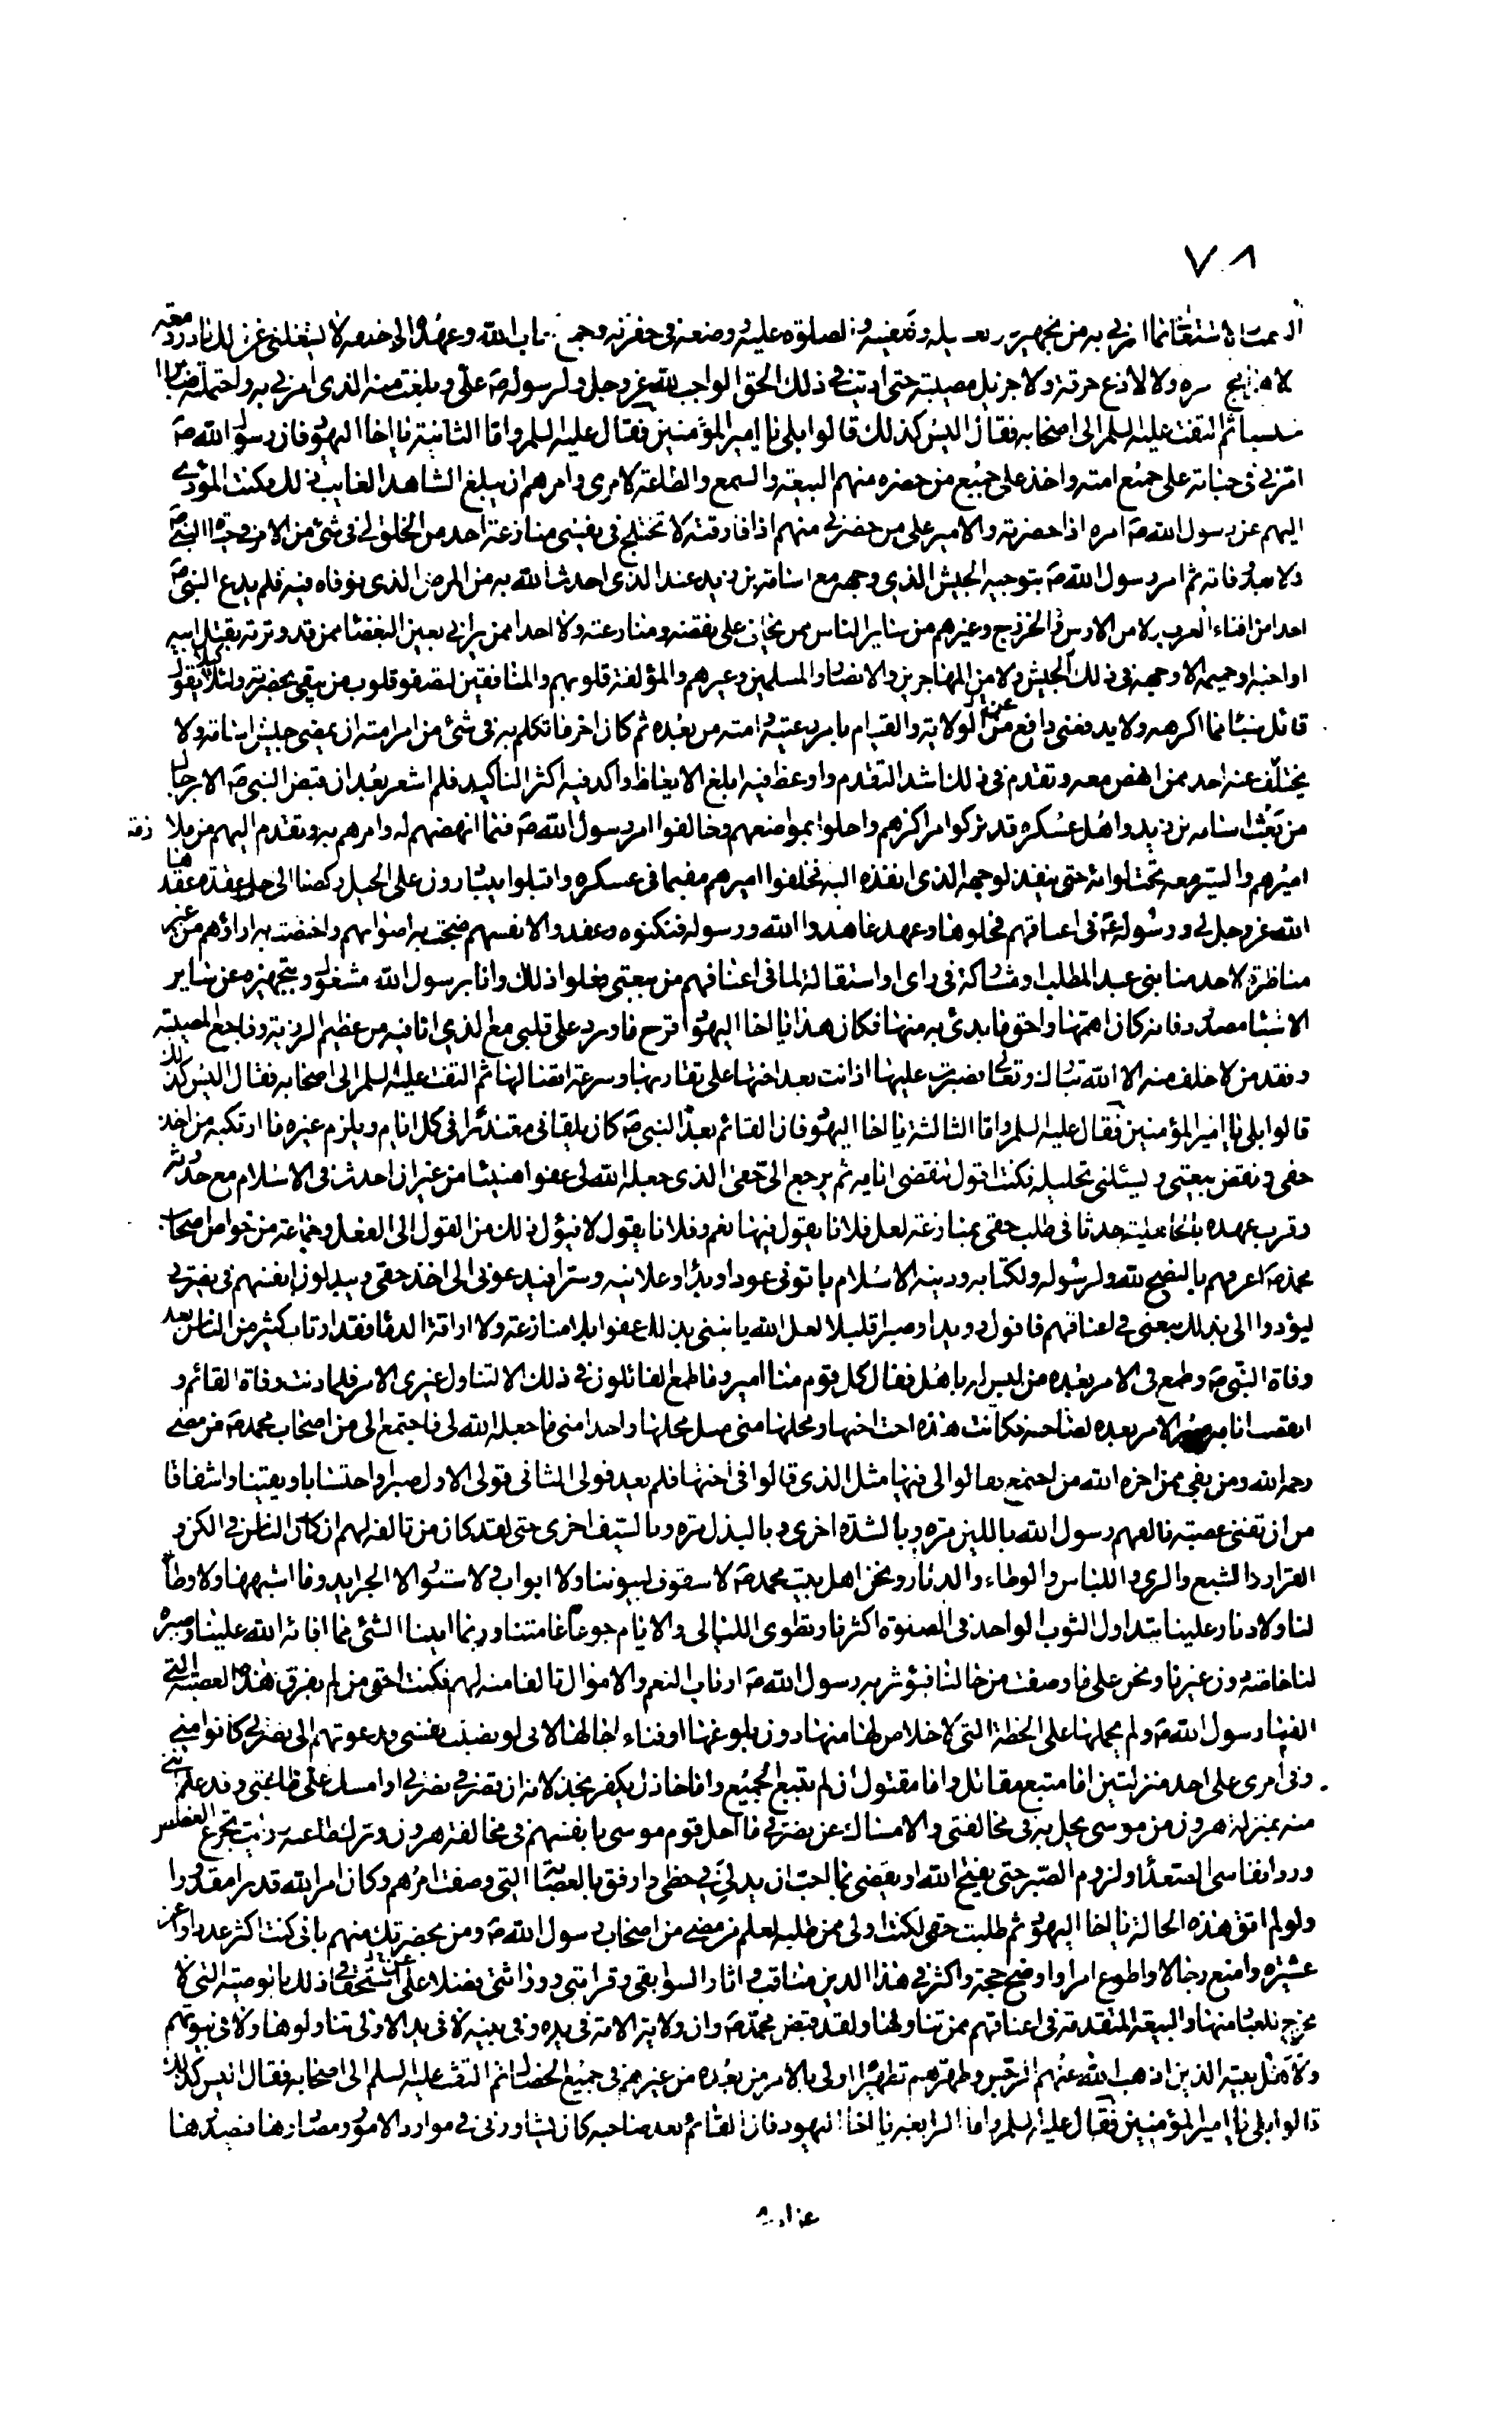 ٧٠٨
الصمت والاشتغال بما امرني به من تجهيزه وتغسيله و تحنيطه و الصلوة عليه و وضعه في حفرته وجمع كتاب الله وعهده الى خلقه لا يشغلني عن ذلك بادر دمعة
لا هايج زفرة ولا لاذع حرقة ولا جزيل مصيبة حتى اديت في ذلك الحق الواجب لله عز وجل ولرسوله ص علي وبلغت منه الذي امرني به واحتملته صابرا
محتسبا ثم التفت عليه السلم الى اصحابه فقال اليس كذلك قالوا بلى يا امير المؤمنين فقال عليه السلم واما الثانية يا اخا اليهود فان رسول الله ص
امرني في حياته على جميع امته واخذ على جميع من حضره منهم البيعة والسمع والطاعة لامري وامرهم ان يبلغ الشاهد الغايب ذلك فكنت المؤدي
اليهم عن رسول الله ص امره اذا حضرته والامير على من حضرني منهم اذا فارقته لا تختلج في نفسي منازعة احد من الخلق لي في شئ من الامر في حيوة النبي ص
ولا بعد وفاته ثم امر رسول الله ص بتوجيه الجيش الذي وجهه مع اسامة بن زيد عند الذي احدث الله به من المرض الذي توفاه فيه فلم يدع النبي ص
احدا من افناء العرب ولا من الاوس و الخزرج وغيرهم من ساير الناس ممن يخاف على نقضه ومنازعته ولا احدا ممن يراني بعين البغضاء ممن قد وترته بقتل ابيه
او اخيه او حميمه الا وجهه في ذلك الجيش ولا من المهاجرين والانصار والمسلمين وغيرهم والمؤلفة قلوبهم والمنافقين لتصفو قلوب من يبقى بحضرته ولئلا يقول
قائل شيئا مما اكرهه ولا يدفعني دافع عن الولاية والقيام بامر رعيته و امته من بعده ثم كان اخر ما تكلم به في شئ من امر امته ان يمضي جيش اسامة ولا
يختلف عنه احد ممن انهض معه وتقدم في ذلك اشد التقدم واوعظ فيه ابلغ الايعاظ واكد فيه اكثر التاكيد فلم اشعر بعد ان قبض النبي ص الا برجال
من بعث اسامة بن زيد واهل عسكره قد تركوا مراكزهم واخلوا بمواضعهم وخالفوا امر رسول الله ص فيما انهضهم له وامرهم به وتقدم اليهم من ملازمة
اميرهم والسير معه تحت لوائه حتى ينفذ لوجهه الذي انفذه اليه فخلفوا اميرهم مقيما في عسكره واقبلوا يتبادرون على الخيل ركضا الى حل عقدة عقدها
الله عز وجل لي و رسوله ص في اعناقهم فحلوها وعهد عاهدوا الله ورسوله فنكثوه وعقدوا لانفسهم ضجت به اصواتهم واختصت به اراؤهم من غير
مناظرة لاحد منا بني عبد المطلب او مشاركة في راى او استقالة لما في اعناقهم من بيعتي فعلوا ذلك وانا برسول الله مشغول وبتجهيزه عن ساير
الاشياء مصدود فانه كان اهمها واحق ما بدئ به منها فكان هذا يا اخا اليهود اقرح ما ورد على قلبي مع الذي انا فيه من عظيم الرزية وفاجع المصيبة
وفقد من لا خلف منه الا الله تبارك وتعالى فصبرت عليها اذ اتت بعد اختها على تقاربها وسرعة اتصالها ثم التفت عليه السلم الى اصحابه فقال اليس كذلك
قالوا بلى يا امير المؤمنين فقال عليه السلم واما الثالثة يا اخا اليهود فان القائم بعد النبي ص كان يلقاني معتذرا في كل ايام ويلزم غيره ما ارتكبه من اخذ
حقي و نقض بيعتي و يسئلني تحليله فكنت اقول تنقضي ايامه ثم يرجع الي حقي الذي جعله الله لي عفوا هنيئا من غير ان احدث في الاسلام مع حدوثه
وقرب عهده بالجاهلية حدثا في طلب حقي بمنازعة لعل فلانا يقول فيها نعم وفلانا يقول لا فيؤل ذلك من القول الى الفعل وجماعة من خواص اصحاب
محمد ص اعرفهم بالنصح لله ولرسوله ولكتابه ودينه الاسلام ياتوني عودا وبدءا وعلانية وسرا فيدعوني الى اخذ حقي و يبذلون انفسهم في نصرتي
ليؤدوا الي بذلك بيعتي في اعناقهم فاقول رويدا وصبرا قليلا لعل الله ياتيني بذلك عفوا بلا منازعة ولا اراقة الدماء فقد ارتاب كثير من الناس بعد
وفاة النبي ص وطمع في الامر بعده من ليس له باهل فقال كل قوم منا امير وما طمع القائلون في ذلك الا لتناول غيري الامر فلما دنت وفاة القائم و
انقضت ايامه صير الامر بعده لصاحبه فكانت هذه اخت اختها ومحلها مني مثل محلها واخذا مني ما جعله الله لي فاجتمع الي من اصحاب محمد ص من مضى
رحمه الله ومن بقي ممن اخره الله من اجتمع فقالوا لي فيها مثل الذي قالوا في اختها فلم يعد قولي الثاني قولي الاول صبرا واحتسابا ويقينا واشفاقا
من ان تفنى عصبة تالفهم رسول الله باللين مرة و بالشدة اخرى و بالبذل مرة وبالسيف اخرى حتى لقد كان من تالفه لهم ان كان الناس في الكر و
الفرار والشبع والري و اللباس والوطاء والدثار ونحن اهل بيت محمد ص لا سقوف لبيوتنا ولا ابواب و لا ستور الا الجرايد وما اشبهها ولا وطاء
لنا ولا دثار علينا يتداول الثوب الواحد في الصلوة اكثرنا ونطوى الليالي والايام جوعا عامتنا وربما اتينا الشئ مما افائه الله علينا وصيره
لنا خاصة دون غيرنا ونحن على ما وصفت من حالنا فيؤثر به رسول الله ص ارباب النعم والاموال تالفا منه لهم فكنت احق من لم يفرق هذه العصبة التي
الفها رسول الله ص ولم يحملها على الخطة التي لا خلاص لها منها دون بلوغها او فناء اجالها لاني لو نصبت نفسي فدعوتهم الى نصرتي كانوا مني
وفي امري على احد منزلتين اما متبع مقاتل واما مقتول ان لم يتبع الجميع واما خاذل يكفر بخذلانه ان قصر في نصرتي او امسك عن طاعتي وقد علم اني
منه بمنزلة هرون من موسى يحل به في مخالفتي والامساك عن نصرتي ما احل قوم موسى بانفسهم في مخالفة هرون وترك طاعته ورايت تجرع الغصص
ورد انفاس الصعداء ولزوم الصبر حتى يفتح الله او يقضي بما احب ازيد لي في حظي وارفق بالعصابة التي وصفت امرهم وكان امر الله قدرا مقدورا
ولو لم اتق هذه الحالة يا اخا اليهود ثم طلبت حقي لكنت اولى ممن طلبه لعلم من مضى من اصحاب رسول الله ص ومن بحضرتك منهم باني كنت اكثر عددا واعز
عشيرة وامنع رجالا واطوع امرا واوضح حجة واكثر في هذا الدين مناقب و اثارا لسوابقي وقرابتي و وراثتي فضلا عن استحقاقي ذلك بالوصية التي لا
مخرج للعباد منها والبيعة المتقدمة في اعناقهم ممن تناولها ولقد قبض محمد ص وان ولاية الامة في يده وفي بيته لا في يد الاولى تناولوها ولا في بيوتهم
ولاهل بيته الذين اذهب الله عنهم الرجس وطهرهم تطهيرا اولى بالامر من بعده من غيرهم في جميع الخصال ثم التفت عليه السلم الى اصحابه فقال اليس كذلك
قالوا بلى يا امير المؤمنين فقال عليه السلم واما الرابعة يا اخا اليهود فان القائم بعد صاحبه كان يشاورني في موارد الامور ومصادرها فيصدرها